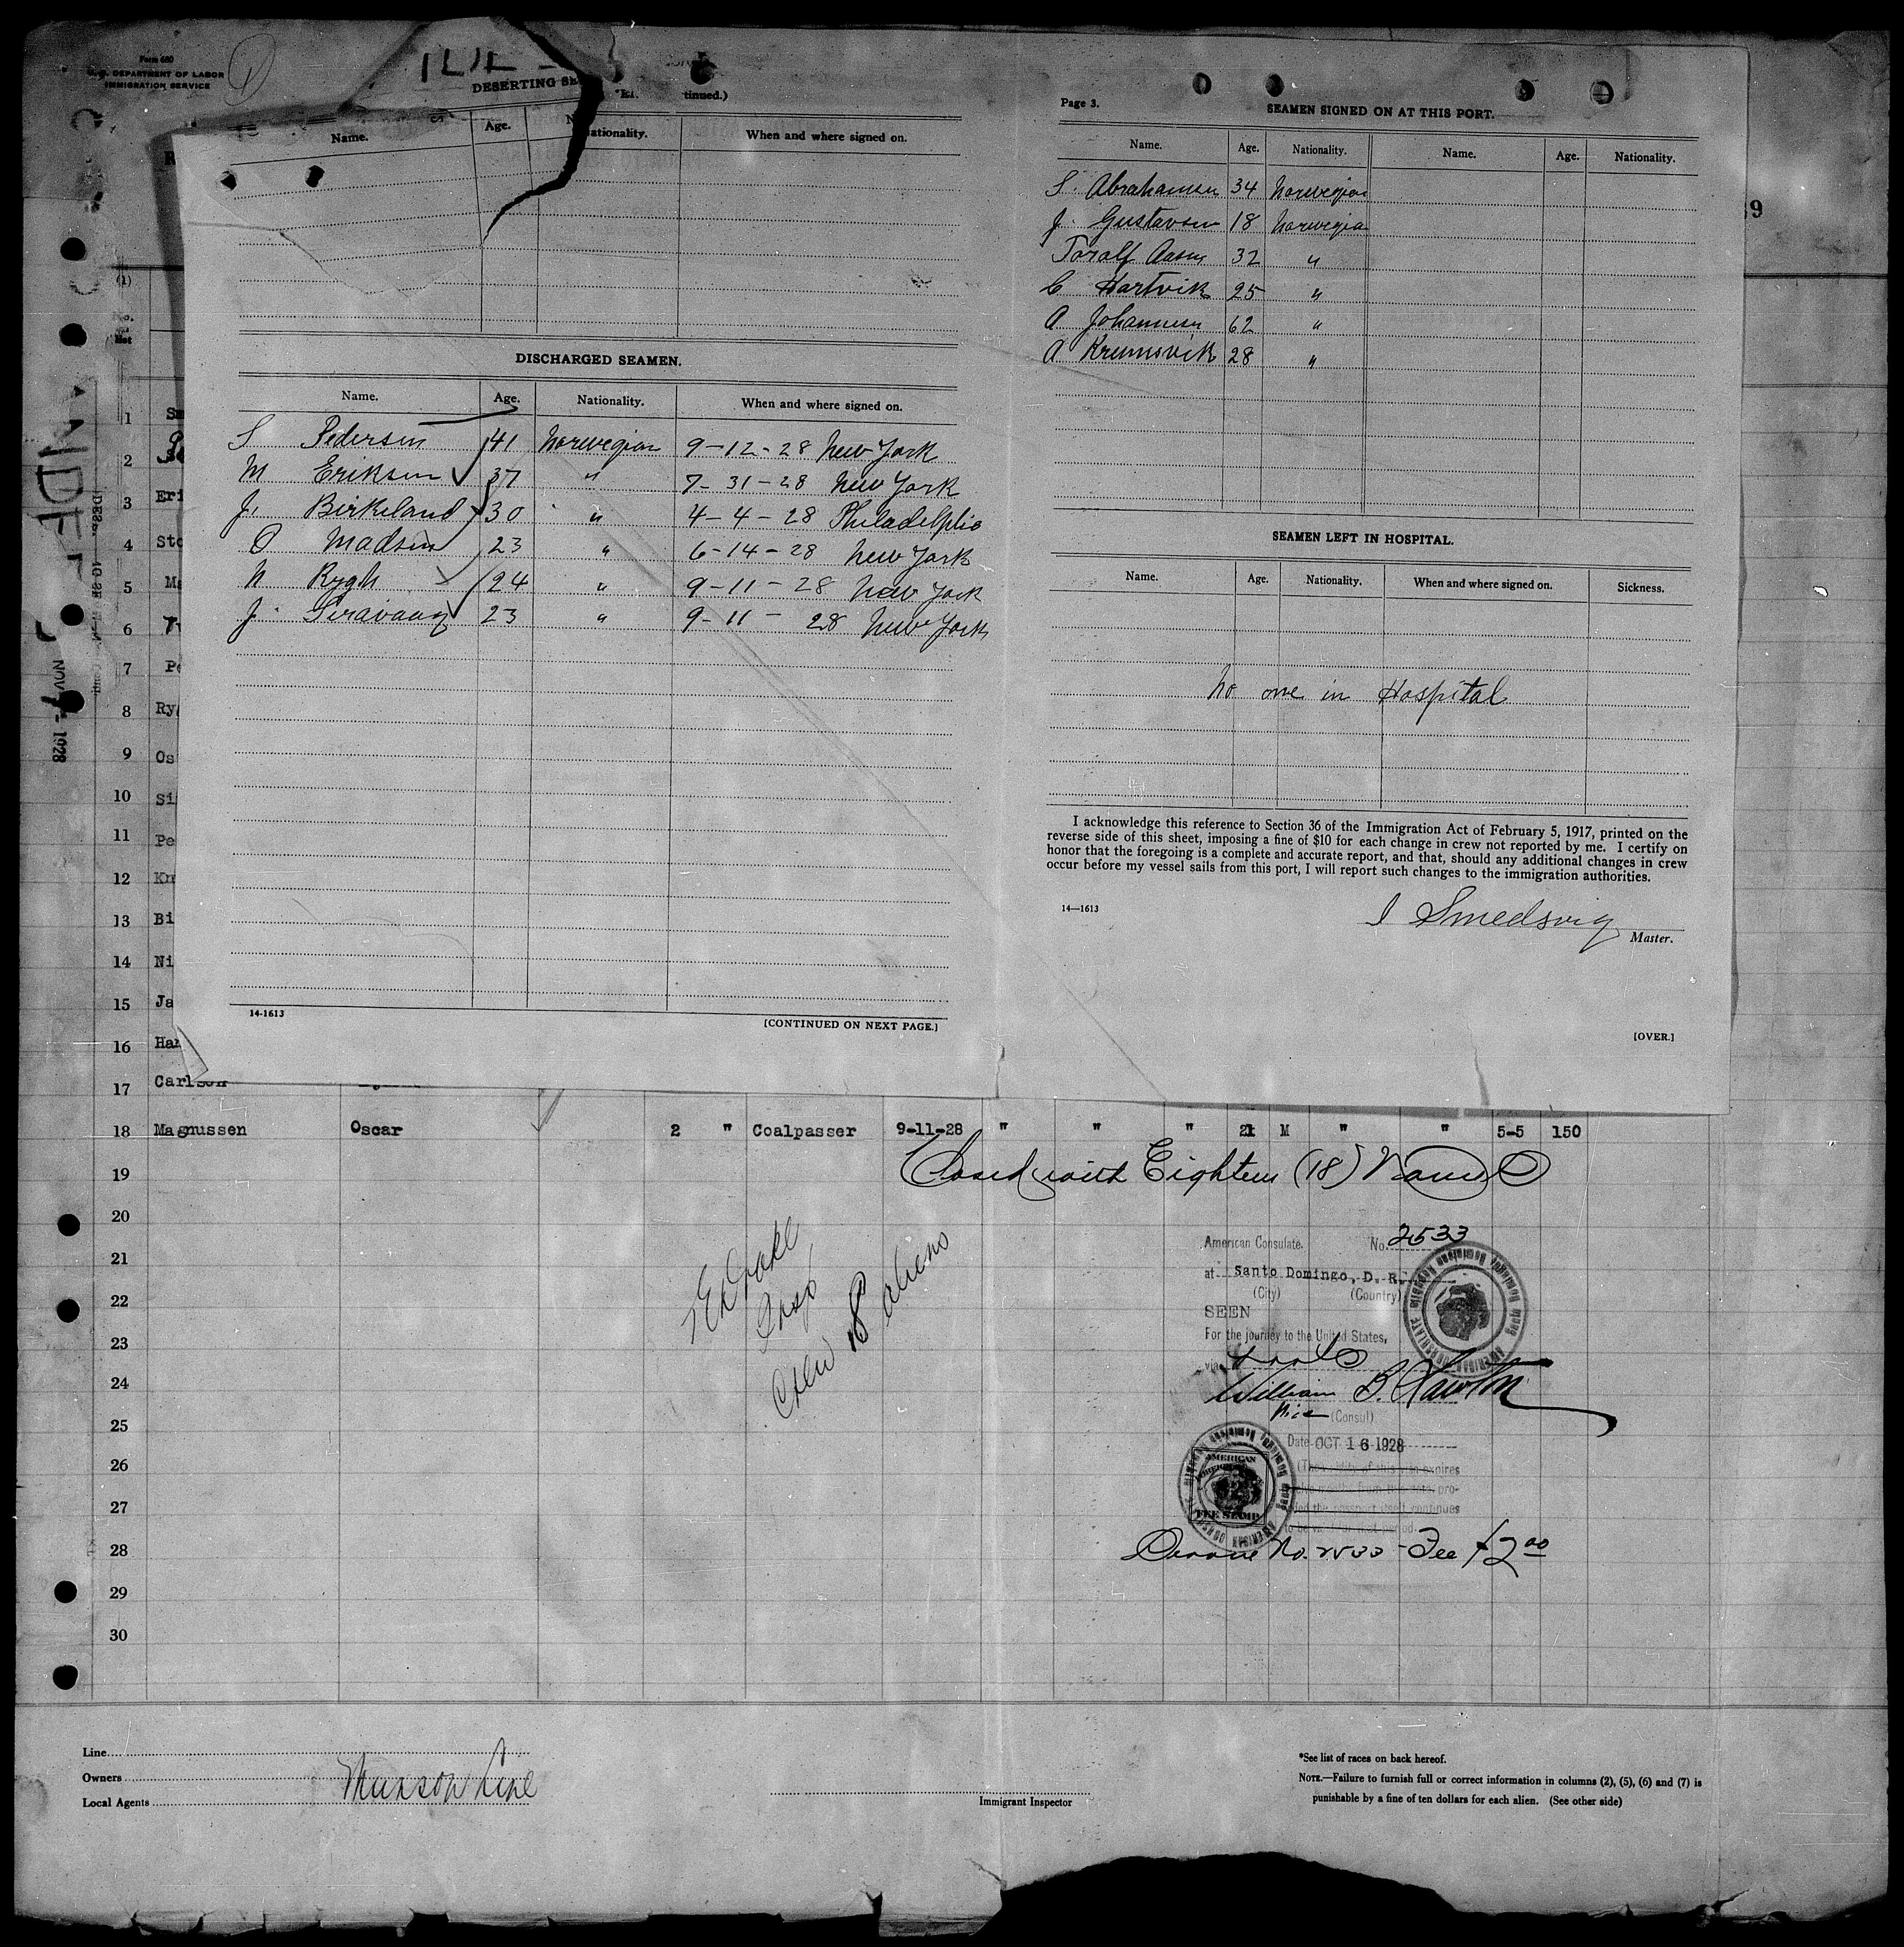 Form 680
U. S. DEPARTMENT OF LABOR
IMMIGRATION SERVICE
DESERTING SE
tinued.)
Name. Age. Nationality. When and where signed on.
DISCHARGED SEAMEN.
Name. Age. Nationality. When and where signed on.
S Pedersen 41 Norwegian 9-12-28 New York
M Eriksen 37 " 7-31-28 New York
J. Birkeland 30 " 4-4-28 Philadelphia
O Madsen 23 " 6-14-28 New York
N Rygh 24 " 9-11-28 New York
J. 23 " 9-11-28 New York
14-1613
[CONTINUED ON NEXT PAGE.]
Page 3.
SEAMEN SIGNED ON AT THIS PORT.
Name. Age. Nationality. Name. Age. Nationality.
S. Abrahamsen 34 Norwegian
J. Gustavsen 18 Norwegian
Toralf 32 "
C Hartvik 25 "
A Johannesen 62 "
A Krumsvik 28 "
SEAMEN LEFT IN HOSPITAL.
Name. Age. Nationality. When and where signed on. Sickness.
No one in Hospital
I acknowledge this reference to Section 36 of the Immigration Act of February 5, 1917, printed on the
reverse side of this sheet, imposing a fine of $10 for each change in crew not reported by me. I certify on
honor that the foregoing is a complete and accurate report, and that, should any additional changes in crew
occur before my vessel sails from this port, I will report such changes to the immigration authorities.
14—1613
I Smedsvig
Master.
[OVER.]
(1)
1 Sm
2
3 Eri
4 Sto
5 Ma
6
7 Pe
8 Ry
9 Os
10 Si
11 Pe
12 Kn
13 Bi
14 Ni
15 Ja
16 Han
17 Carlson
18 Magnussen Oscar 2 " Coalpasser 9-11-28 " " " 21 M " " 5-5 150
19 Closed with Eighteen (18) Names
20
21
22
23
24
25
26
27
28
29
30
NOV 1928
Insp
Crew 18 aliens
American Consulate. No. 2533
at Santo Domingo, D. R.
(City) (Country)
SEEN
For the journey to the United States,
via
William B. Lawton
Vice (Consul)
Date OCT 16 1928
AMERICAN
FEE STAMP
Service No. 2533 - Fee $2.00
Line
Owners
Local Agents
Munson Line
Immigrant Inspector
*See list of races on back hereof.
NOTE.—Failure to furnish full or correct information in columns (2), (5), (6) and (7) is
punishable by a fine of ten dollars for each alien. (See other side)